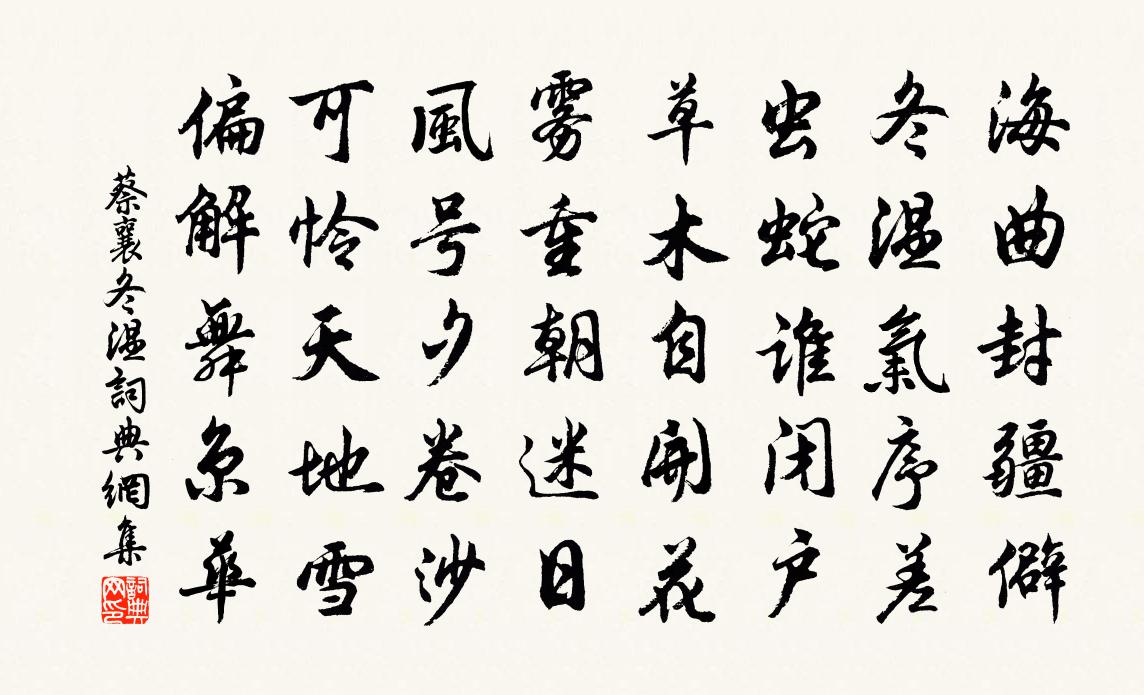 海曲封疆僻
冬温氣序差
虫蛇谁闭户
草木自開花
雾重朝迷日
風号夕卷沙
可怜天地雪
偏解舞京華
蔡襄冬温詞典網集
詞典网印